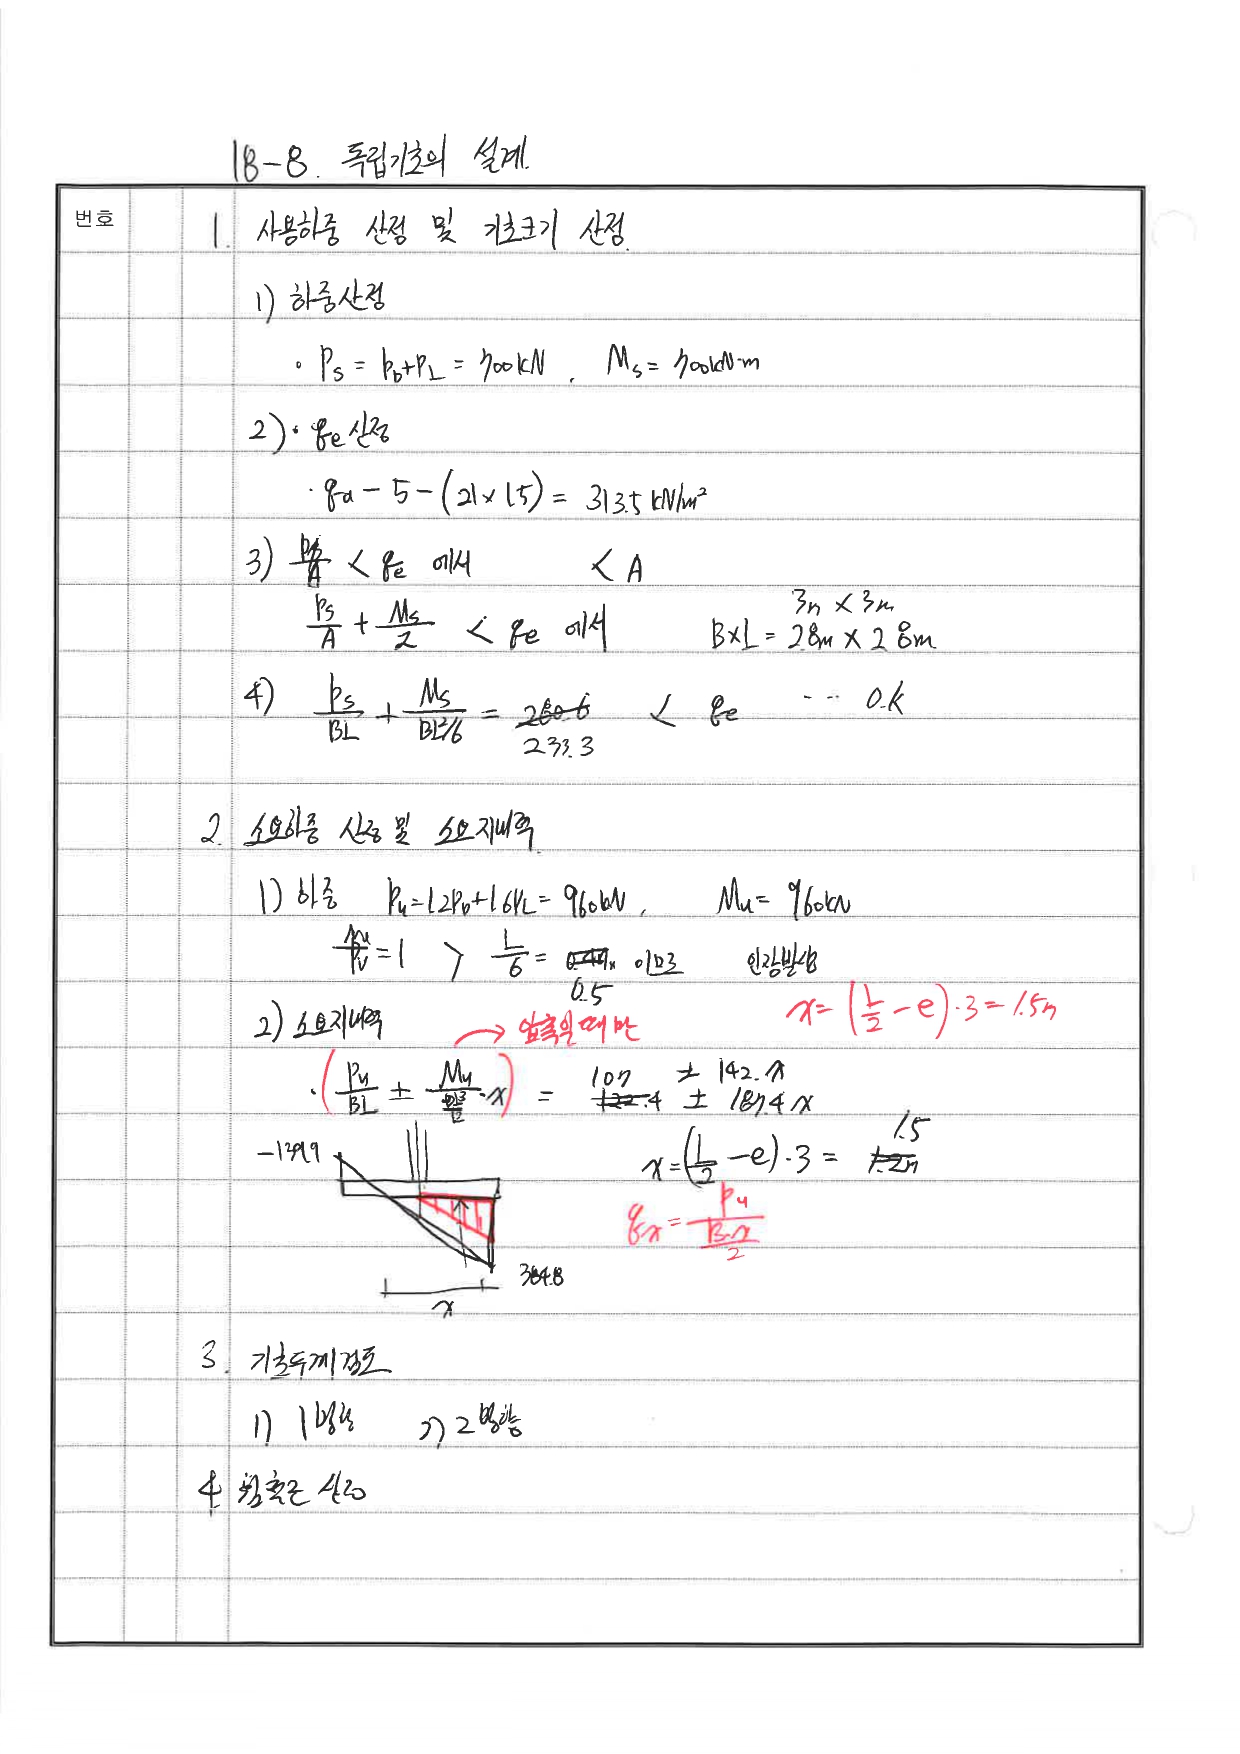 18-8. 독립기초의 설계.
번호
1. 사용하중 산정 및 기초크기 산정.
1) 하중산정
· Ps = PD+PL = 700kN, Ms = 700kN·m
2)· qe 산정
· qa - 5 - (21×1.5) = 313.5 kN/m²
3) Ps/A < qe 에서 < A
3m × 3m
Ps/A + Ms/Z < qe 에서 B×L = 2.8m × 2.8m
4) Ps/BL + Ms/(BL²/6) = 280.6 < qe ... O.K
233.3
2. 소요하중 산정 및 소요지내력.
1) 하중 Pu = 1.2PD+1.6PL = 960kN, Mu = 960kN
Mu/Pu = 1 > L/6 = 이므로 인장발생
0.5
x = (L/2 - e)·3 = 1.5m
2) 소요지내력
→ 압축일때만
·(Pu/BL ± Mu/(BL³/12)·x) = 107 ± 142.x
122.4 ± 187.4x
-139.9
1.5
x = (L/2 - e)·3 = 1.2m
qx = Pu/(B·x/2)
384.8
x
3. 기초두께검토
1) 1방향 2) 2방향
4. 휨철근 산정